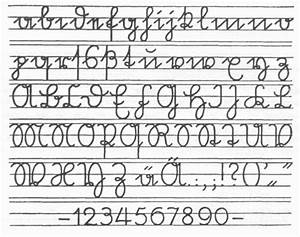 a b c d e f g h i j k l m n o
p q r ſ s ß t ŭ v w x y z
A B C D E F G H I J K L
M N O P Q R S T U V
W X Y Z ü Ä . : , ; ! ? ( ) ' „ "
-1234567890-